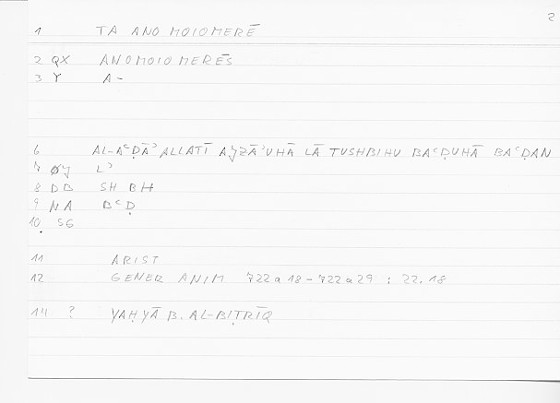 2
1 TA ANOMOIOMERĒ
2 QX ANOMOIOMERĒS
3 Y A-
6 AL-AʿḌĀʾ ALLATĪ AJZĀʾUHĀ LĀ TUSHBIHU BAʿḌUHĀ BAʿḌAN
7 ØJ Lʾ
8 DB SH BH
9 NA BʿḌ
10. 56
11 ARIST
12 GENER ANIM 722a18-722a29 : 22.18
14 ? YAḤYĀ B. AL-BIṬRĪQ